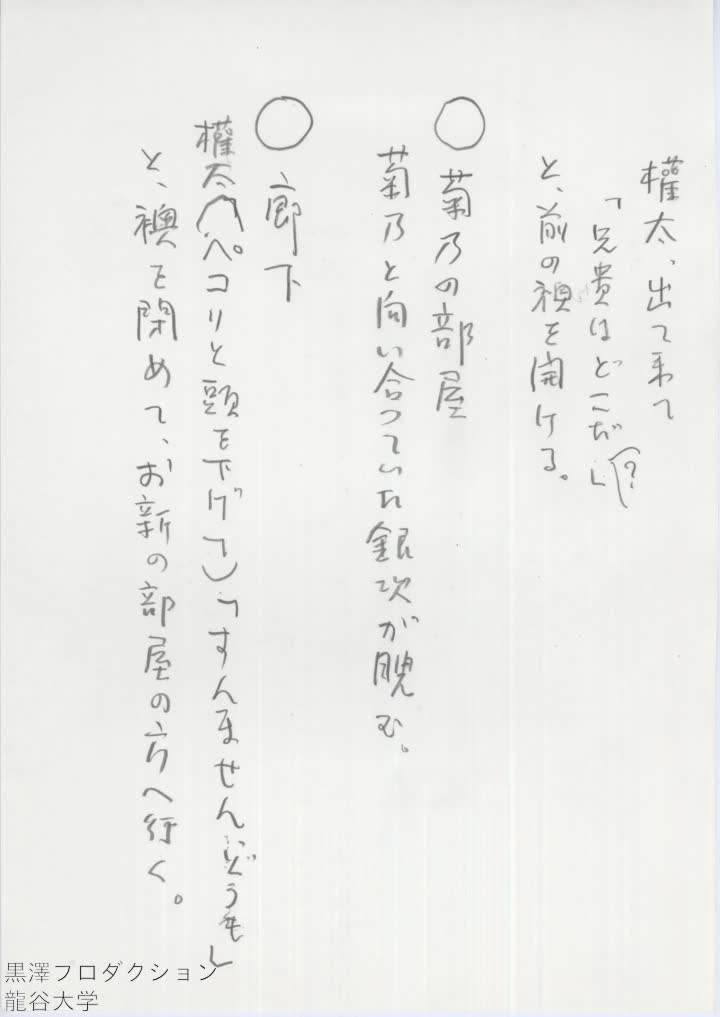 權太、出て来て
「兄貴はどこだ?」
と、前の襖を開ける。
○菊乃の部屋
菊乃と向い合っていた銀次が睨む。
○廊下
權太(ペコリと頭を下げて)「すんません、どうも」
と、襖を閉めて、お新の部屋の方へ行く。
黒澤プロダクション
龍谷大学